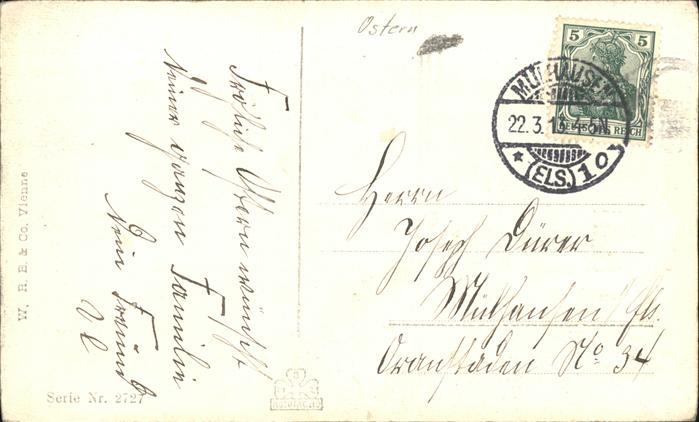 Ostern
5 5
DEUTSCHES REICH
MÜLHAUSEN
22.3. 4-5N
★ (ELS.) 10
Fröhliche Ostern wünscht
Deiner ganzen Familie
Dein Freund
Herrn
Joseph Dürer
Mülhausen / Els.
Oranstaden No 34
W. R. B. & Co. Vienne
Serie Nr. 2727